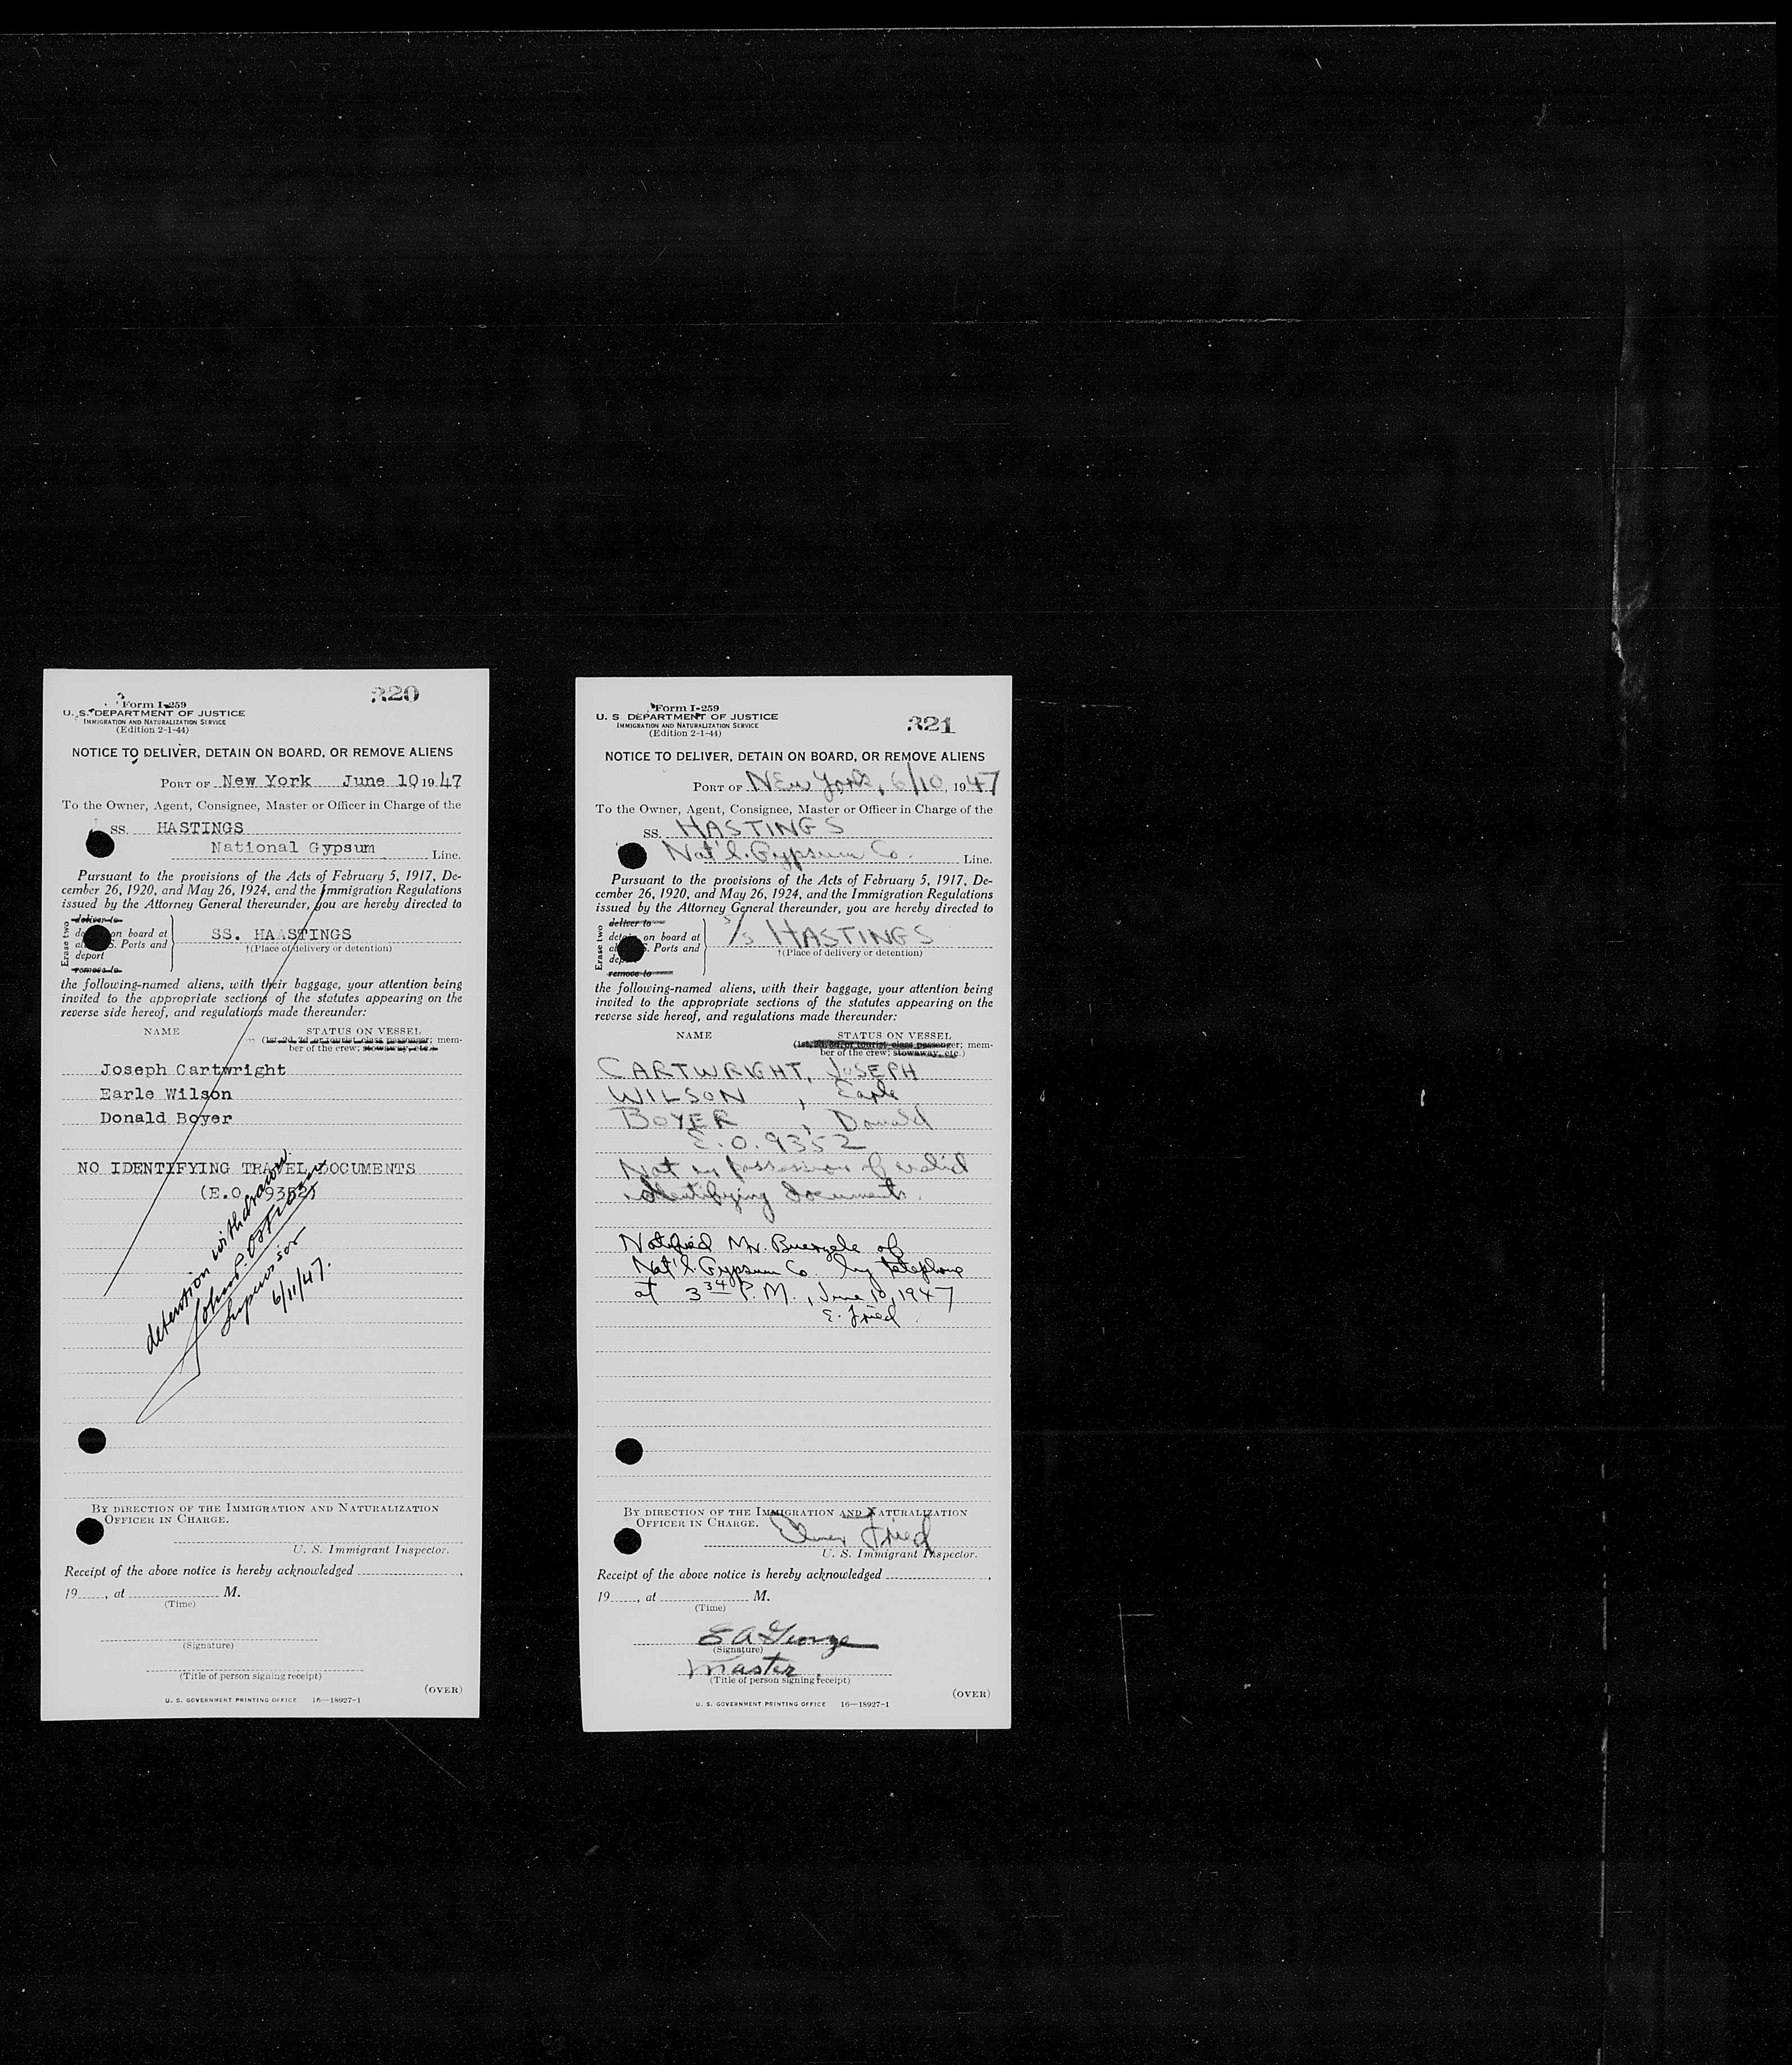 320
Form I-259
U. S. DEPARTMENT OF JUSTICE
IMMIGRATION AND NATURALIZATION SERVICE
(Edition 2-1-44)
NOTICE TO DELIVER, DETAIN ON BOARD, OR REMOVE ALIENS
PORT OF New York June 10 1947
To the Owner, Agent, Consignee, Master or Officer in Charge of the
SS. HASTINGS
National Gypsum Line.
Pursuant to the provisions of the Acts of February 5, 1917, De-
cember 26, 1920, and May 26, 1924, and the Immigration Regulations
issued by the Attorney General thereunder, you are hereby directed to
Erase two
deliver to
on board at
S. Ports and
deport
remove to
SS. HAASTINGS
†(Place of delivery or detention)
the following-named aliens, with their baggage, your attention being
invited to the appropriate sections of the statutes appearing on the
reverse side hereof, and regulations made thereunder:
NAME STATUS ON VESSEL
(1st, 2d, 3d, or tourist class passenger; mem-
ber of the crew; stowaway, etc.)
Joseph Cartwright
Earle Wilson
Donald Boyer
NO IDENTIFYING TRAVEL DOCUMENTS
(E.O. 9352)
detention withdrawn.
John P.
Supervisor
6/11/47.
BY DIRECTION OF THE IMMIGRATION AND NATURALIZATION
OFFICER IN CHARGE.
U. S. Immigrant Inspector.
Receipt of the above notice is hereby acknowledged
19, at M.
(Time)
(Signature)
(Title of person signing receipt)
(OVER)
U. S. GOVERNMENT PRINTING OFFICE 16—18927-1
321
Form I-259
U. S DEPARTMENT OF JUSTICE
IMMIGRATION AND NATURALIZATION SERVICE
(Edition 2-1-44)
NOTICE TO DELIVER, DETAIN ON BOARD, OR REMOVE ALIENS
PORT OF NEW York, 6/10, 1947
To the Owner, Agent, Consignee, Master or Officer in Charge of the
SS. HASTINGS
Nat'l. Gypsum Co. Line.
Pursuant to the provisions of the Acts of February 5, 1917, De-
cember 26, 1920, and May 26, 1924, and the Immigration Regulations
issued by the Attorney General thereunder, you are hereby directed to
Erase two
deliver to
on board at
S. Ports and
remove to
S/S HASTINGS
†(Place of delivery or detention)
the following-named aliens, with their baggage, your attention being
invited to the appropriate sections of the statutes appearing on the
reverse side hereof, and regulations made thereunder:
NAME STATUS ON VESSEL
(1st, 2d, 3d, or tourist class passenger; mem-
ber of the crew; stowaway, etc.)
CARTWRIGHT, JOSEPH
WILSON, Earle
BOYER, Donald
E.O. 9352
Not in possession of valid
identifying documents.
Notified Mr. of
Nat'l. Gypsum Co. by telephone
at 3 34 P.M., June 10, 1947
E. Fried
BY DIRECTION OF THE IMMIGRATION AND NATURALIZATION
OFFICER IN CHARGE.
Fried
U. S. Immigrant Inspector.
Receipt of the above notice is hereby acknowledged
19, at M.
(Time)
E A George
(Signature)
Master.
(Title of person signing receipt)
(OVER)
U. S. GOVERNMENT PRINTING OFFICE 16—18927-1